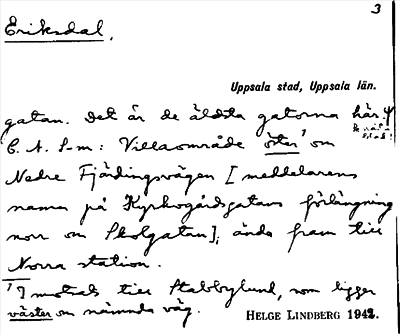 3
Eriksdal.
Uppsala stad, Uppsala län.
gatan. Det är de äldsta gatorna här.
C. A. S-m: Villaområde öster¹ om
Nedre Fjärdingsvägen [meddelarens
namn på Kyrkogårdsgatans förlängning
norr om Skolgatan], ända fram till
Norra station.
¹ I motsats till Stabbylund, som ligger
väster om nämnda väg. HELGE LINDBERG 1942.